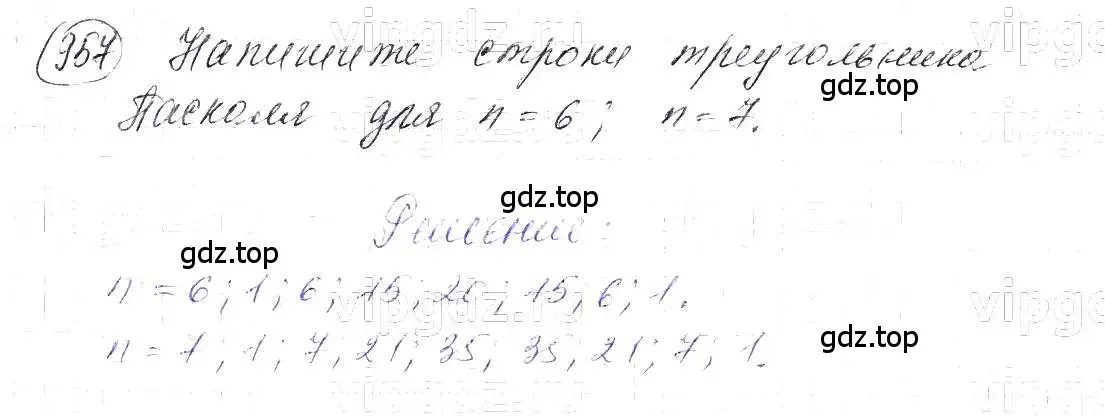 957 Напишите строки треугольника
Паскаля для n = 6; n = 7.
gdz.top
gdz.top
Решение:
gdz.top
n = 6; 1; 6; 15, 20; 15, 6; 1.
n = 7; 1; 7, 21; 35; 35, 21; 7; 1.
gdz.top